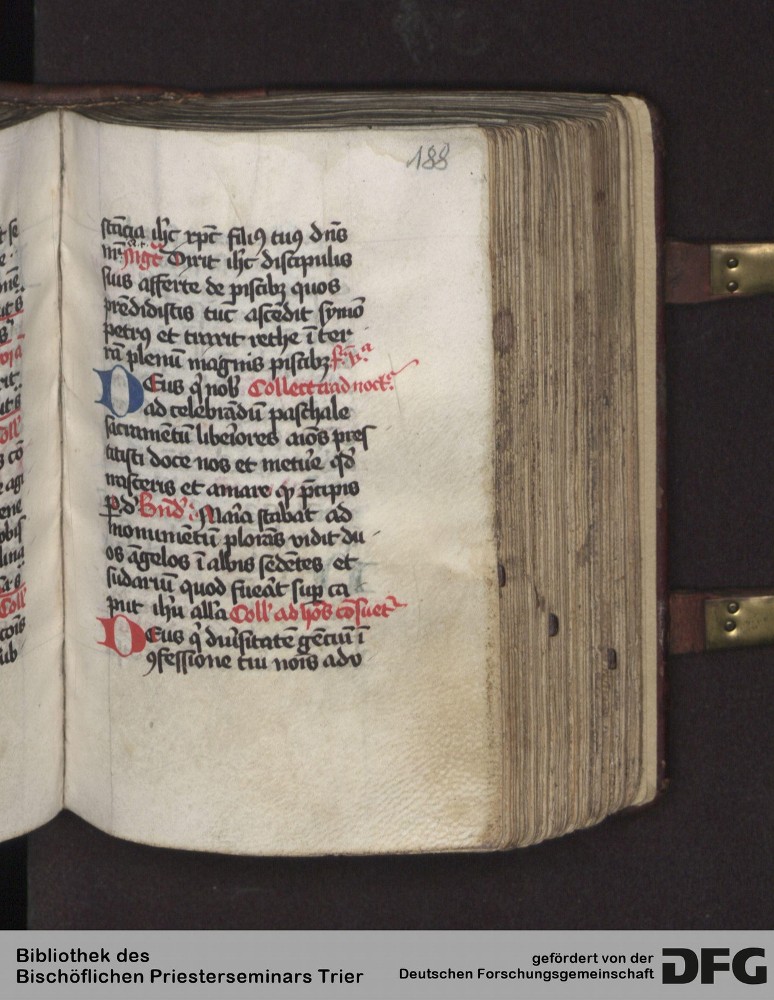 188
stācia ihc xpc filiꝰ tuꝰ dns
nr Mgt Dixit ihc discipulis
suis afferte de piscibꝫ quos
prendidistis tuc ascēdit symō
petrꝰ et traxit rethe ī ter
rā plenū magnis piscibꝫ fr va
Deus q nob Collecta ad noct
ad celebrādū paschale
sacramētū liberiores aios pres
titisti doce nos et metue qd
irasceris et amare qp precipis
p d Bnd Maria stabat ad
monumētū plorās vidit du
os āgelos ī albis sedētes et
sudariū quod fuerat sup ca
put ihu alla Coll ad hos cōsuet
Deus q diuersitatē gētiū ī
ꝯfessione tui nois adv
Bibliothek des
Bischöflichen Priesterseminars Trier
gefördert von der
Deutschen Forschungsgemeinschaft
DFG